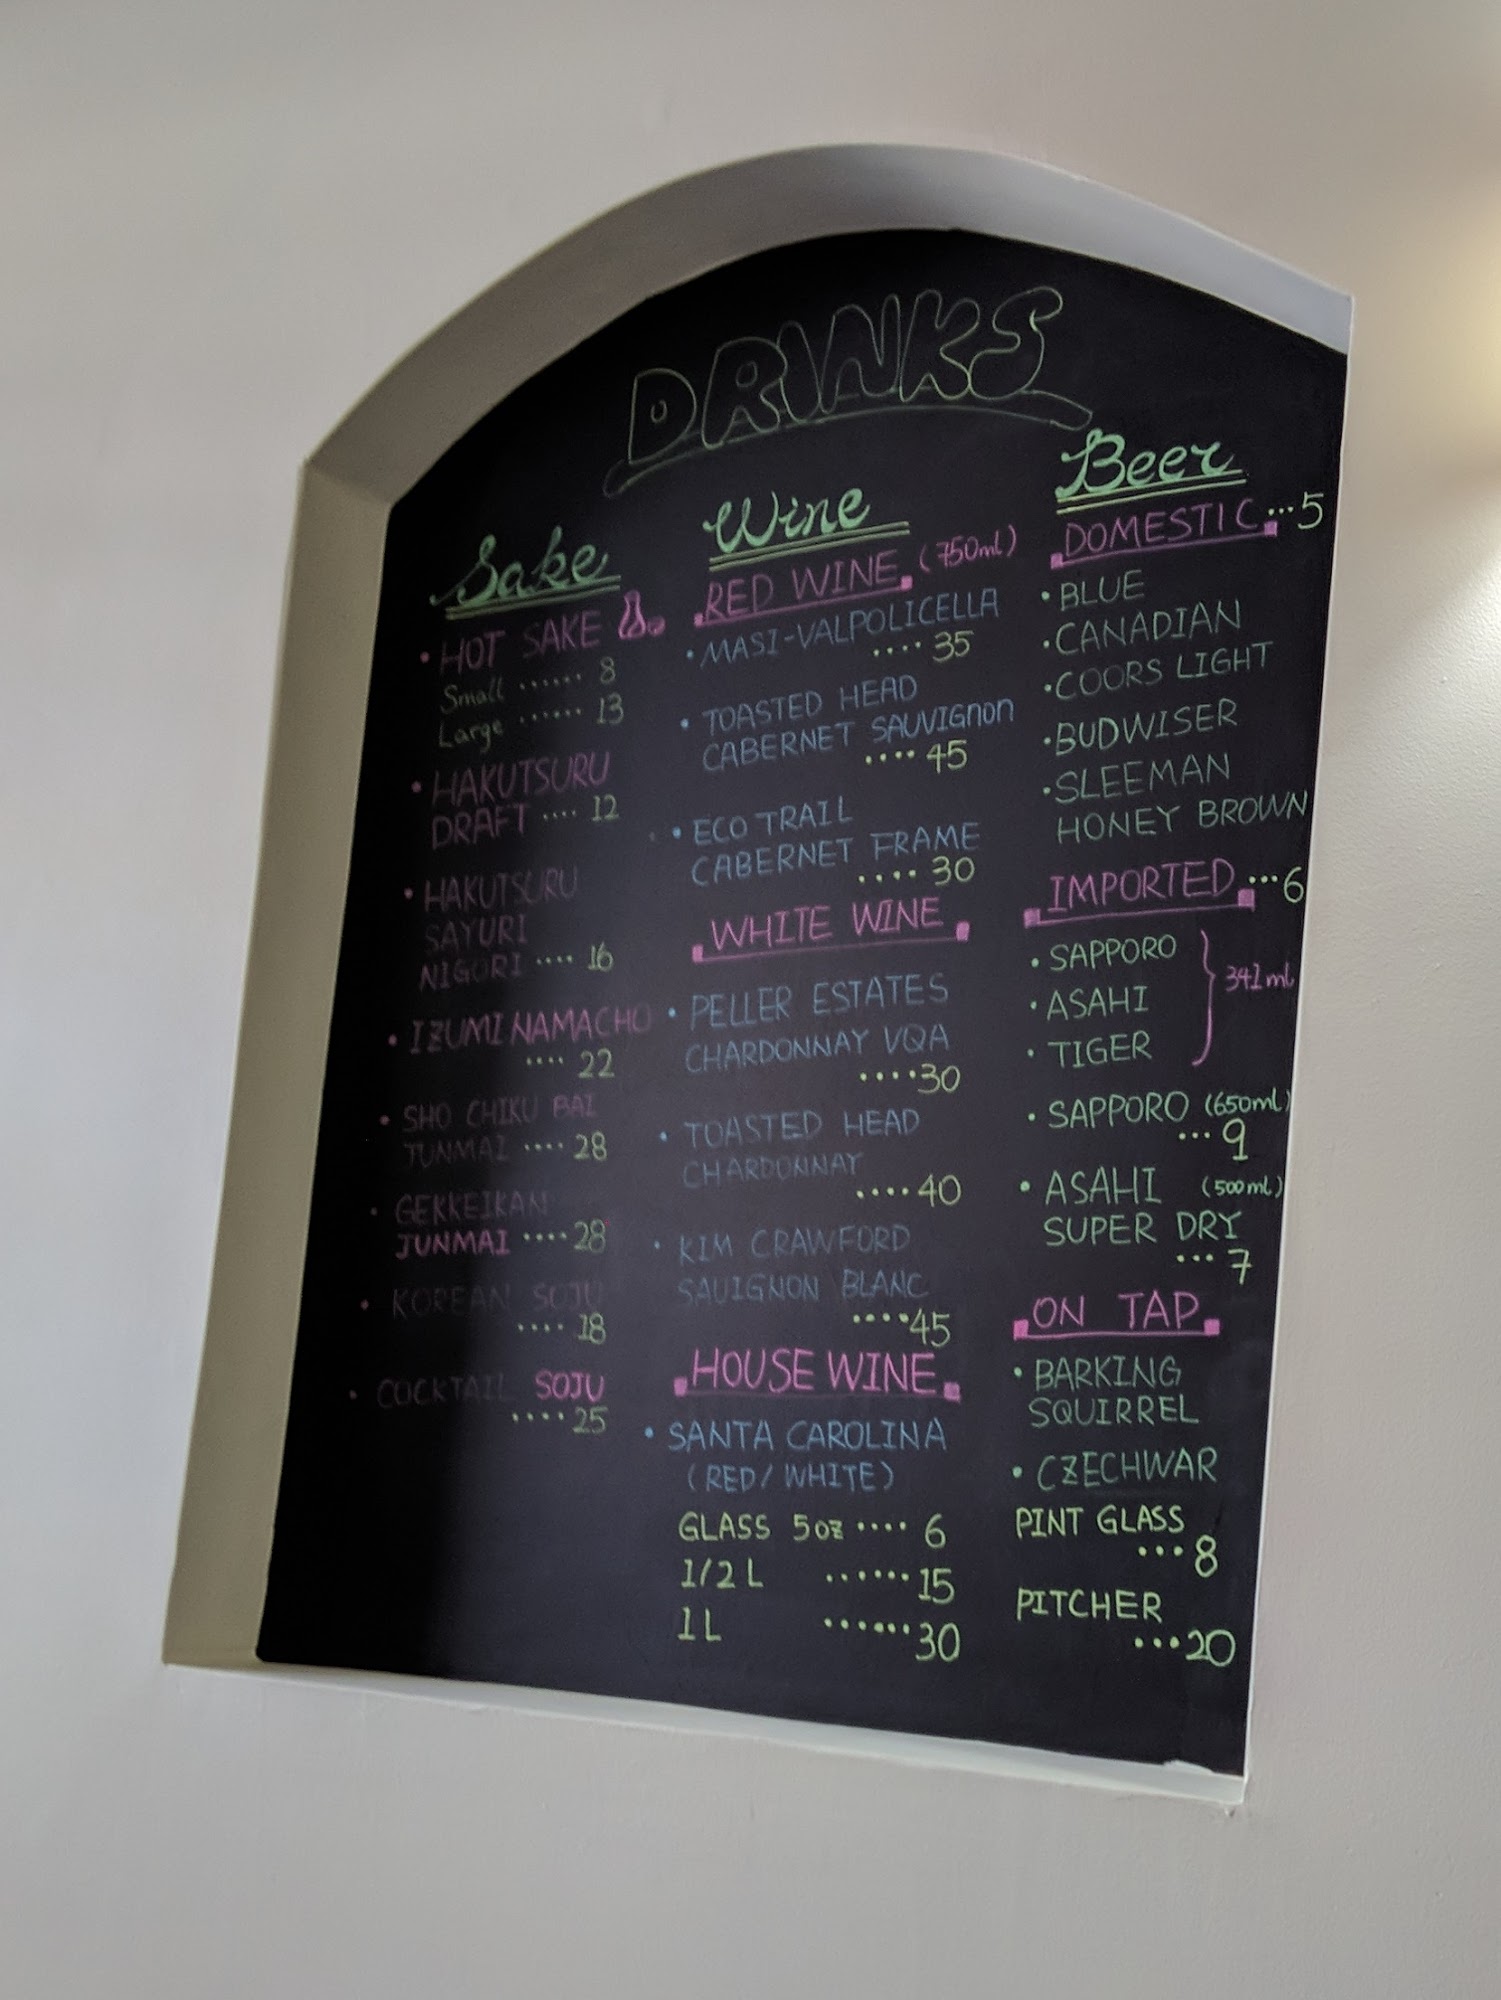 DRINKS
Sake
HOT SAKE
Small ...... 8
Large ...... 13
HAKUTSURU
DRAFT .... 12
HAKUTSURU
SAYURI
NIGORI .... 16
IZUMI NAMACHO
.... 22
SHO CHIKU BAI
JUNMAI .... 28
GEKKEIKAN
JUNMAI .... 28
KOREAN SOJU
.... 18
COCKTAIL SOJU
.... 25
Wine
RED WINE (750ml)
MASI-VALPOLICELLA
.... 35
TOASTED HEAD
CABERNET SAUVIGNON
.... 45
ECO TRAIL
CABERNET FRAME
.... 30
WHITE WINE
PELLER ESTATES
CHARDONNAY VQA
.... 30
TOASTED HEAD
CHARDONNAY
.... 40
KIM CRAWFORD
SAUIGNON BLANC
.... 45
HOUSE WINE
SANTA CAROLINA
(RED/WHITE)
GLASS 5oz .... 6
1/2 L ...... 15
1 L ...... 30
Beer
DOMESTIC ... 5
BLUE
CANADIAN
COORS LIGHT
BUDWISER
SLEEMAN
HONEY BROWN
IMPORTED ... 6
SAPPORO
ASAHI
TIGER
341ml
SAPPORO (650ml)
... 9
ASAHI (500ml)
SUPER DRY
... 7
ON TAP
BARKING
SQUIRREL
CZECHWAR
PINT GLASS
... 8
PITCHER
... 20